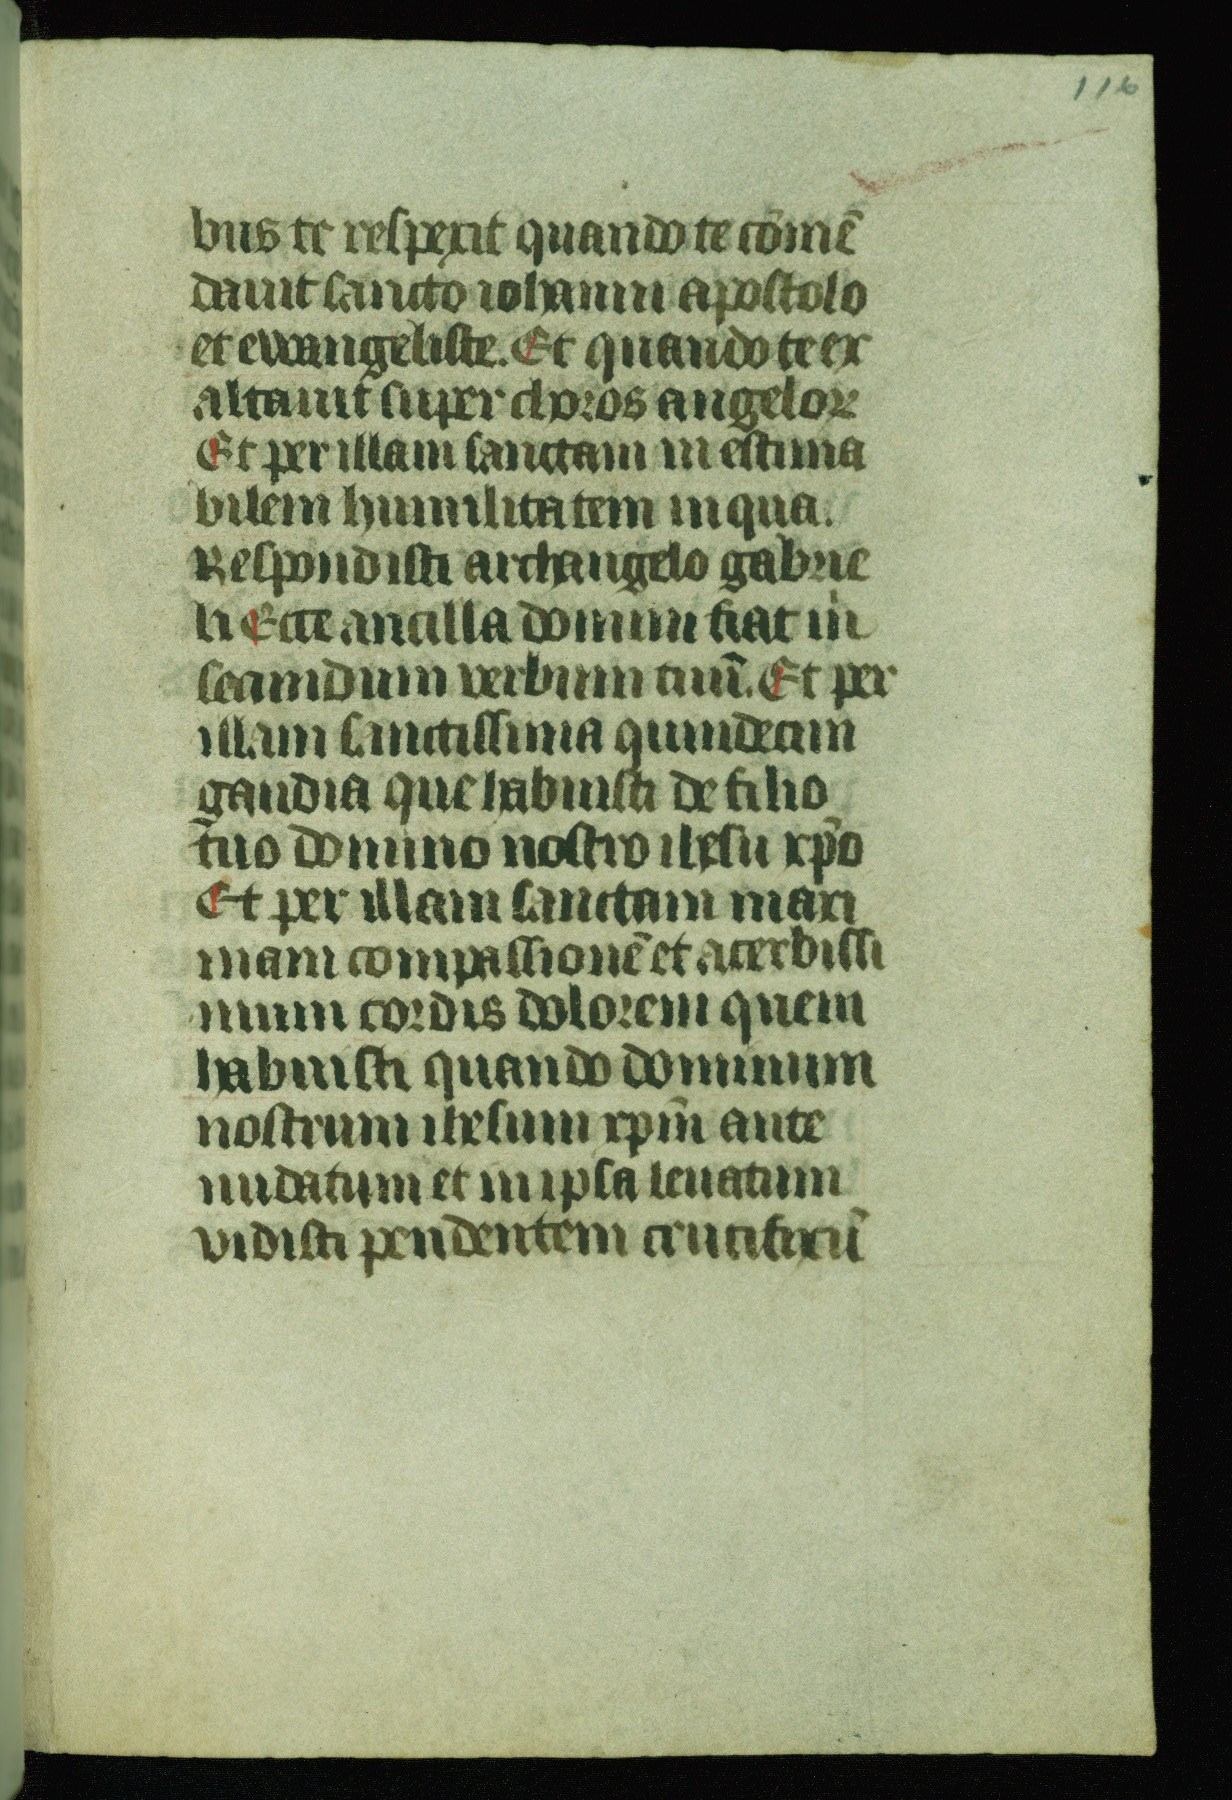 116
bus te respexit quando te cōmē
dauit sancto iohanni apostolo
et ewangeliste. Et quando te ex
altauit super choros angeloꝝ
Et per illam sanctam in estima
bilem humilitatem in qua.
Respondisti archangelo gabrie
li Ecce ancilla domini fiat m̍
secundum verbum tuū. Et per
illam sanctissima quindecim
gaudia que habuisti de filio
tuo domino nostro ihesu xp̄o
Et per illam sanctam maxi
mam compassionē et acerbissi
mum cordis dolorem quem
habuisti quando dominum
nostrum ihesum xpm̄ ante
nudatum et in ipsa leuatum
vidisti pendentem crucifixū